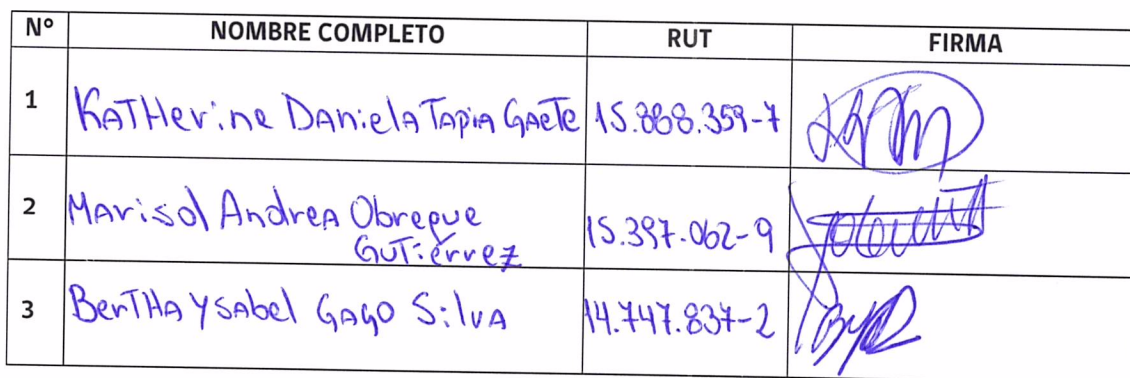 N° NOMBRE COMPLETO RUT FIRMA
1 KATHerine DAnielA TApiA GAeTe 15.888.359-7
2 MArisol AndreA Obreque
GuTiérrez 15.397.062-9
3 BerTHA YsAbel GAgo SilvA 14.747.837-2